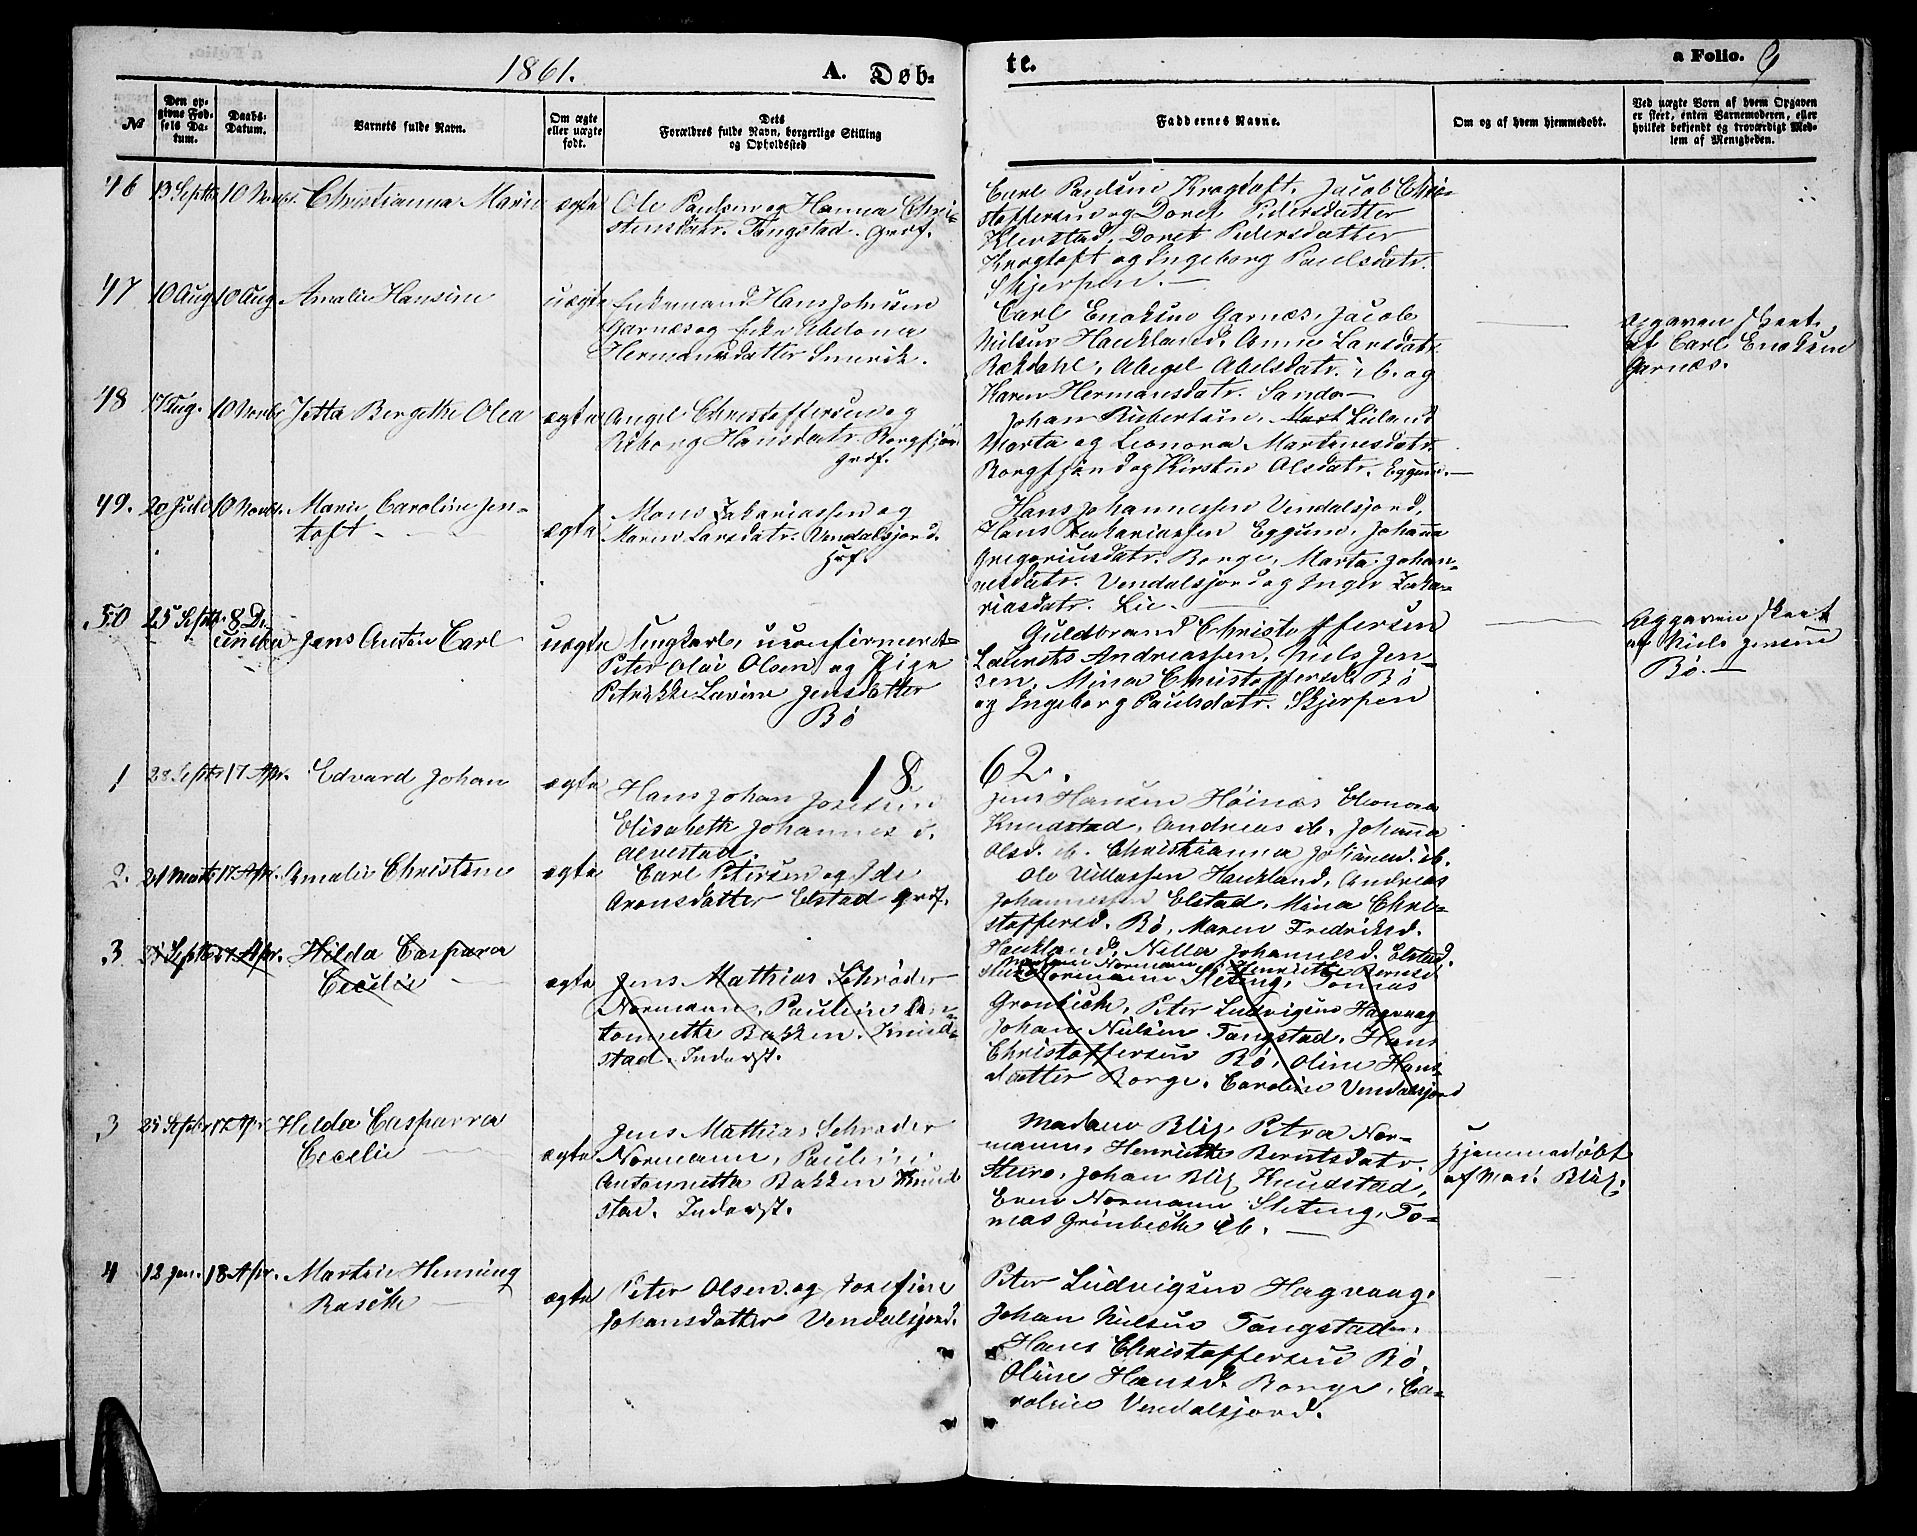 1861.
A. Døb-
te.
a Folio. 9
No
Den op-
givne Fød-
sels Da-
tum.
Daabs-
Datum.
Barnets fulde Navn.
Om ægte
eller uægte
født.
Dets
Forældres fulde Navn, borgerlige Stilling
og Opholdssted
Faddernes Navne.
Om og af hvem hjemmedøbt.
Ved uægte Børn af hvem Opgaven
er skeet, enten Barnemoderen, eller
hvilket bekjendt og troværdigt Med-
lem af Menigheden.
46 13 Septbr 10 Novbr. Christianna Marie ægte Ole Paulsen og Hanna Chri-
stensdatr. Tangstad. Grøf.
Carl Paulsen Krogtoft, Jacob Chri-
stoffersen og Doret Pedersdatter
Kleivstad, Doret Pedersdatter
Krogtoft og Ingeborg Paulsdatr.
Skjerpen.
47 10 Aug 10 Aug Amalie Hansine uægte Enkemand Hans Johnsen
Garnæs og Enke Abelona
Hermansdatter Smervik.
Carl Enoksen Garnæs, Jacob
Nielsen Haukland, Anne Larsdatr.
Rækdahl, Abegel Abelsdatr. ib. og
Karen Hermansdatr. Sandø
Opgaven skeet
af Carl Enoksen
Garnæs.
48 17 Aug. 10 Novbr Jetta Bergethe Olea ægte Angel Christoffersen og
Riborg Hansdatr. Borgfjør
Grøf.
Johan Robertsen, Mort Liland
Marta og Leonora Martinesdatr.
Borgfjørd og Kirstin Olsdatr. Eggum.
49. 20 Juli 10 Novbr. Marie Caroline Jen-
toft
ægte Mons Zakariassen og
Maren Larsdatr. Vendalsjord.
Hans Johannessen Vendalsjord,
Hans Zakariassen Eggum, Johanna
Gregoriusdatr. Borge, Marta Johan-
nesdatr. Vendalsjord og Inger Zaka-
riasdatr. Lie.
50 25 Septbr 8 De-
cember Jens Anton Carl uægte Ungkarl, uconfirmeret
Peter Olai Olsen og Pige
Petrikke Lavine Jensdatter
Bø
Guldbrand Christoffersen
Laurits Andreassen, Niels Jen-
sen, Mina Christoffersd. Bø
og Ingeborg Paulsdatr. Skjerpen
Opgaven skeet
af Niels Jensen
Bø.
1862.
1 28 Septbr 17 Apr. Edvard Johan ægte Hans Johan Josefsen
Elisabeth Johannesd.
Alvestad.
Jens Hansen Høinæs Eleonora
Knudstad, Andreas ib. Johanna
Olsd. ib. Christianna Johannesd. ib.
2. 21 Marts 17 Apr. Amalie Christine ægte Carl Petersen og Ide
Aronsdatter Elstad Grøf.
Ole Villassen Haukland, Andreas
Johannessen Elstad, Mina Chri-
stoffersd. Bø, Maren Fredriksd.
Haukland, Nella Johannesd. Elstad.
3 25 Septbr 17 Apr. Hilda Caspara
Cecilie
ægte Jens Mathias Schrøder
Normann, Pauline An-
tonnette Bakken. Knud-
stad. Inderst.
Normann Sleting, Tomas
Grønbech, Peter Ludvigsen Hagvaag
Johan Nielsen Tangstad, Hans
Christoffersen Bø, Oline Hans-
datter Borge, Caroline Vendalsjord
3 25 Septbr 17 Apr. Hilda Casparra
Cecelie
ægte Jens Mathias Schrøder
Normann, Pauline
Antonnetta Bakken Knud-
stad. Inderst.
Madam Blix, Petra Nor-
mann, Henriette Berntsdatr.
Steiro, Johan Blix Knudstad,
Even Normann Sleting, To-
mas Grønbech ib.
Hjemmedøbt
af Mad. Blix.
4 12 Jan. 18 Apr. Martin Henning
Rasch
ægte Peter Olsen og Josefine
Johansdatter Vendalsjord.
Peter Ludvigsen Hagvaag,
Johan Nielsen Tangstad,
Hans Christoffersen Bø,
Oline Hansd. Borge, Ca-
roline Vendalsjord.